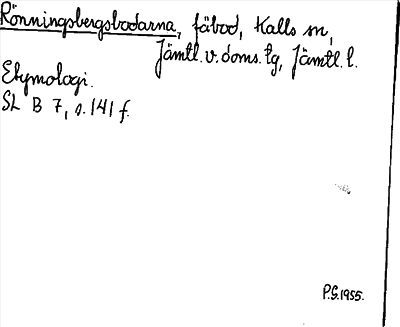 Rönningsbergsbodarna, fäbod, Kalls sn,
Jämtl. v. doms. tg, Jämtl. l.
Etymologi.
SL B 7, s. 141 f.
P.G. 1955.